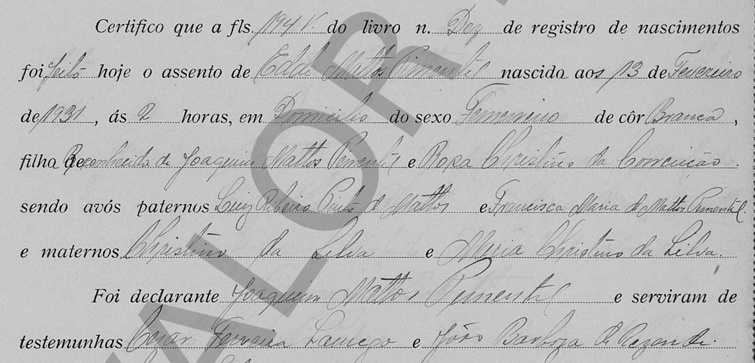 Certifico que a fls. 194 V do livro n. Dez de registro de nascimentos
foi feito hoje o assento de Eddi Mattos Pimentel nascido aos 13 de Fevereiro
de 1931, ás 2 horas, em Domicilio do sexo Femenino de côr Branca,
filha Reconhecida de Joaquim Mattos Pimentel e Rosa Christino da Conceição
sendo avós paternos Luiz Ribeiro Pinto de Mattos e Francisca Maria de Mattos Pimentel
e maternos Christino da Silva e Maria Christino da Silva.
Foi declarante Joaquim Mattos Pimentel e serviram de
testemunhas Cezar Ferreira Lamego e João Barboza de Rezende.
VALOR